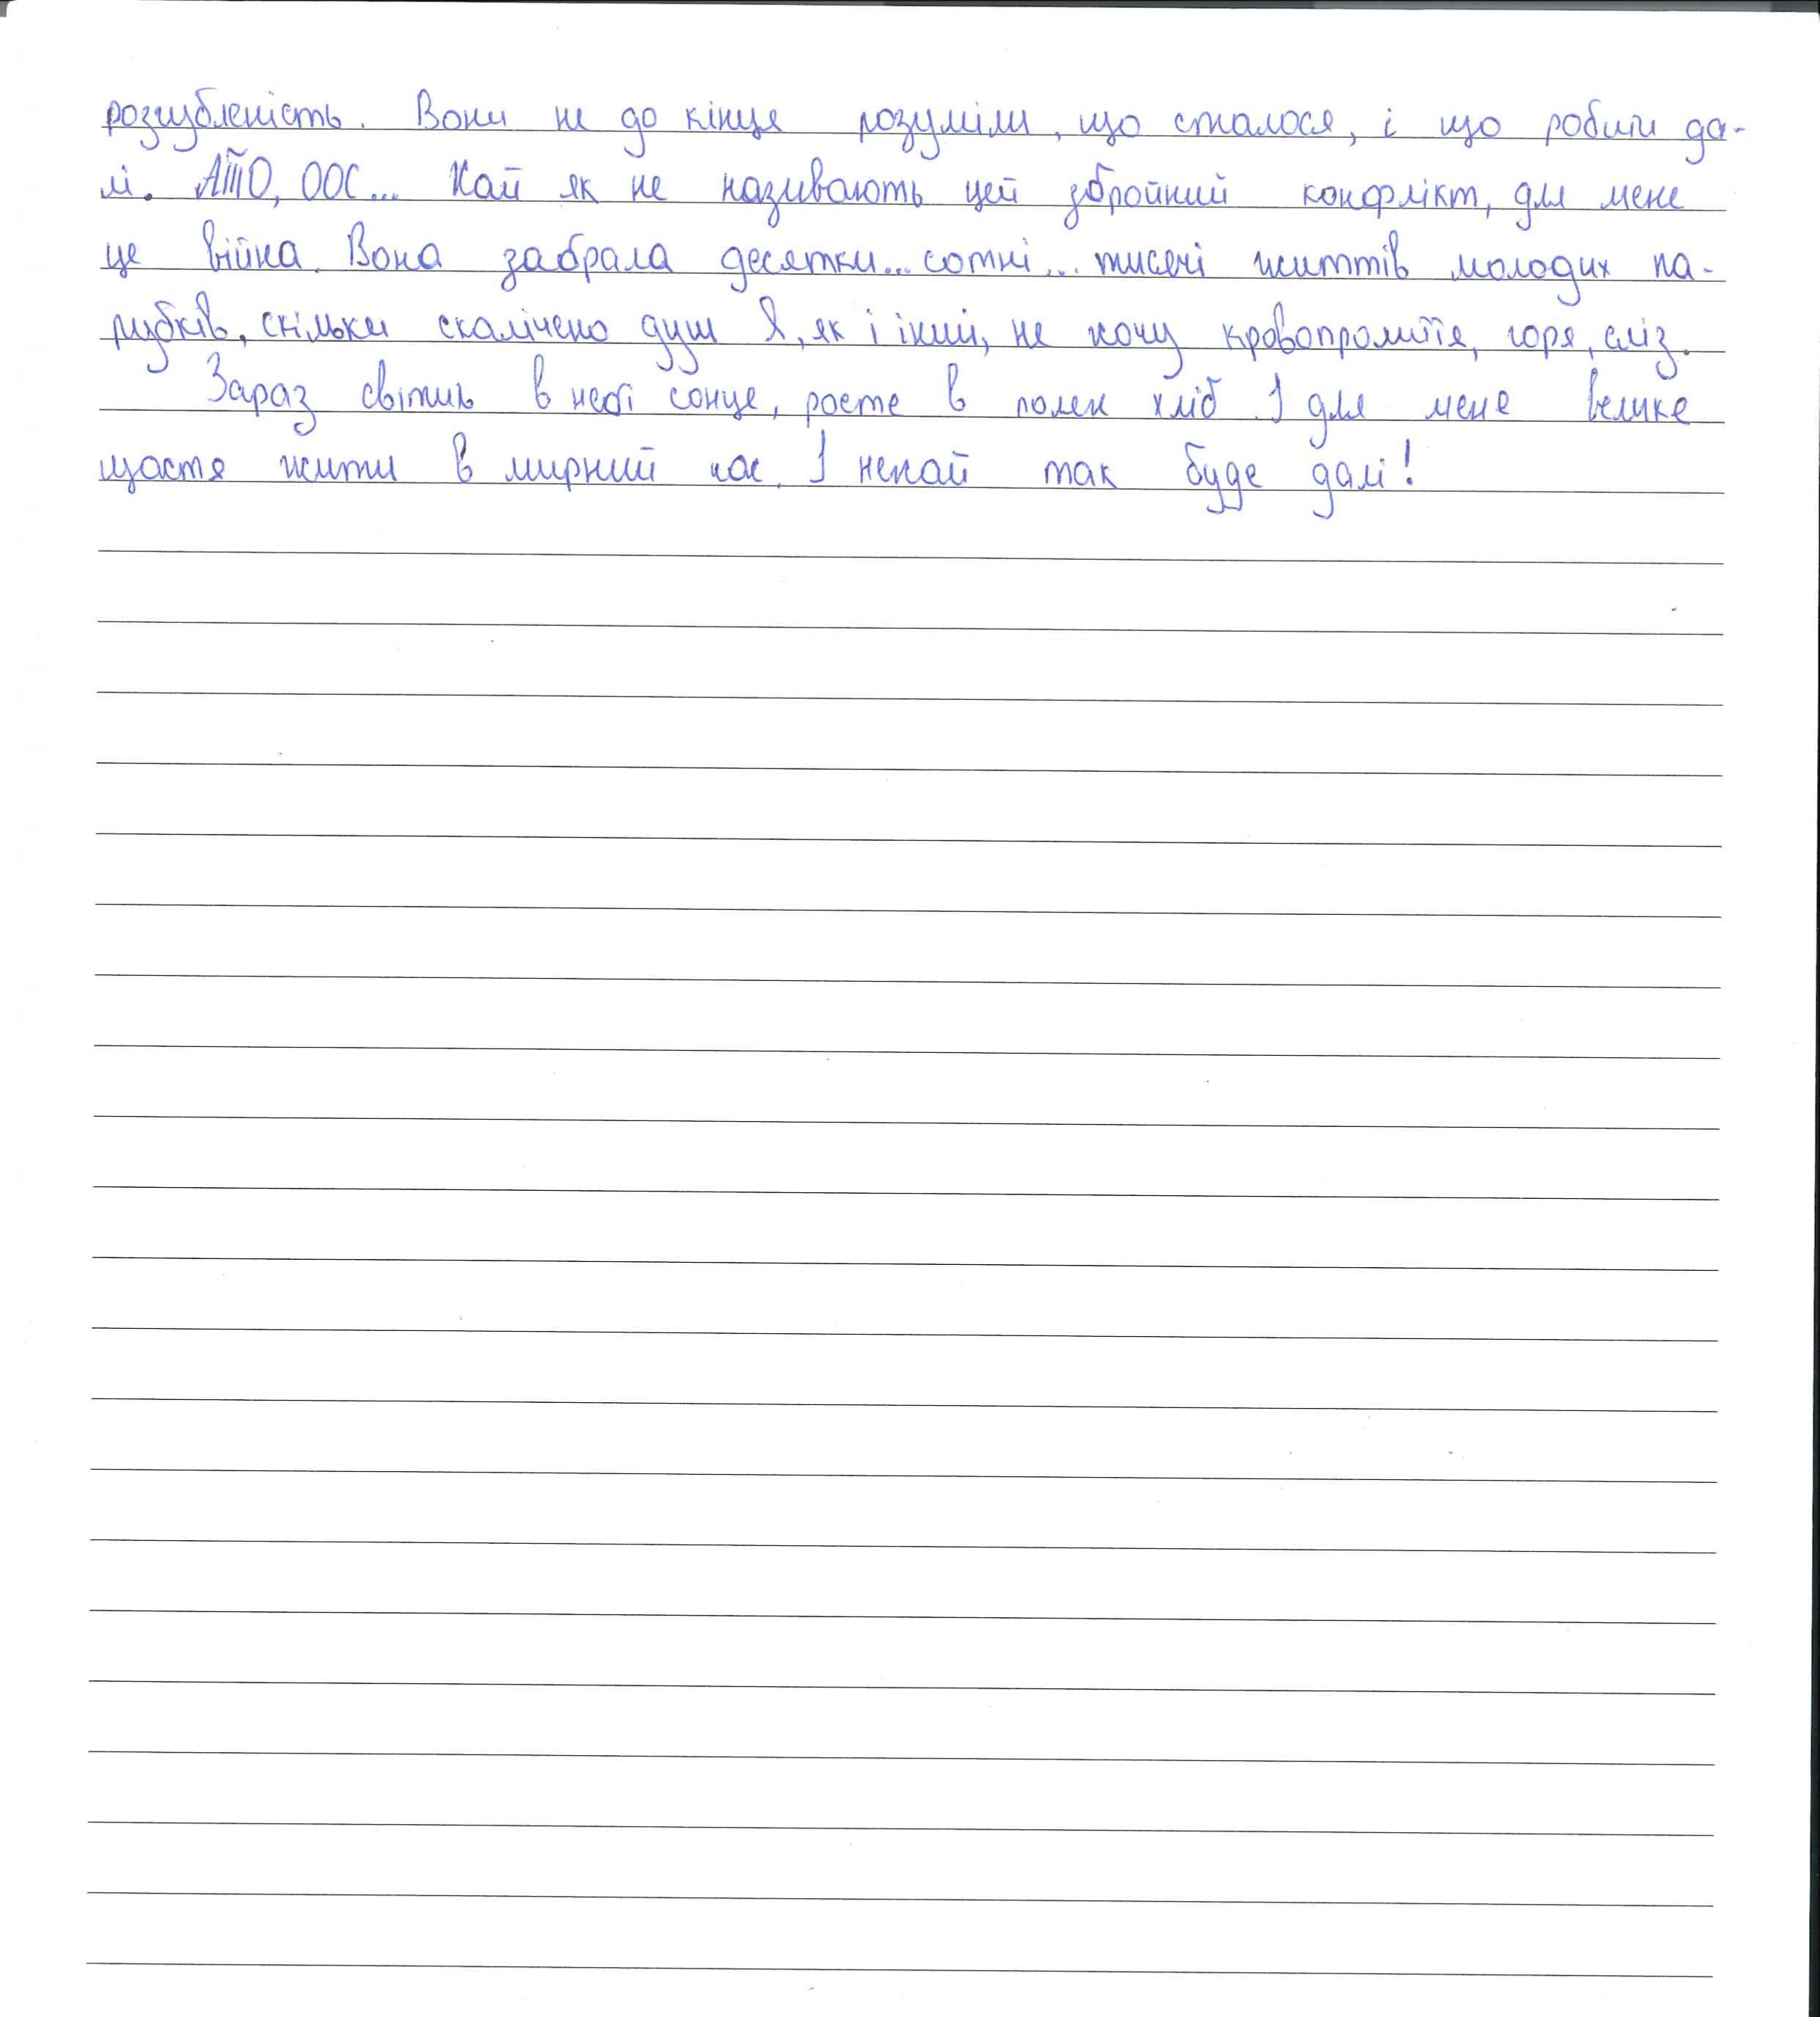 розгубленість. Вони не до кінця розуміли, що сталося, і що робити да-
лі. АТО, ООС... Хай як не називають цей збройний конфлікт, для мене
це війна. Вона забрала десятки... сотні... тисячі життів молодих па-
рубків, скільки скалічено душ Я, як і інші, не хочу кровопролиття, горя, сліз.
Зараз світить в небі сонце, росте в полях хліб. І для мене велике
щастя жити в мирний час. І нехай так буде далі!